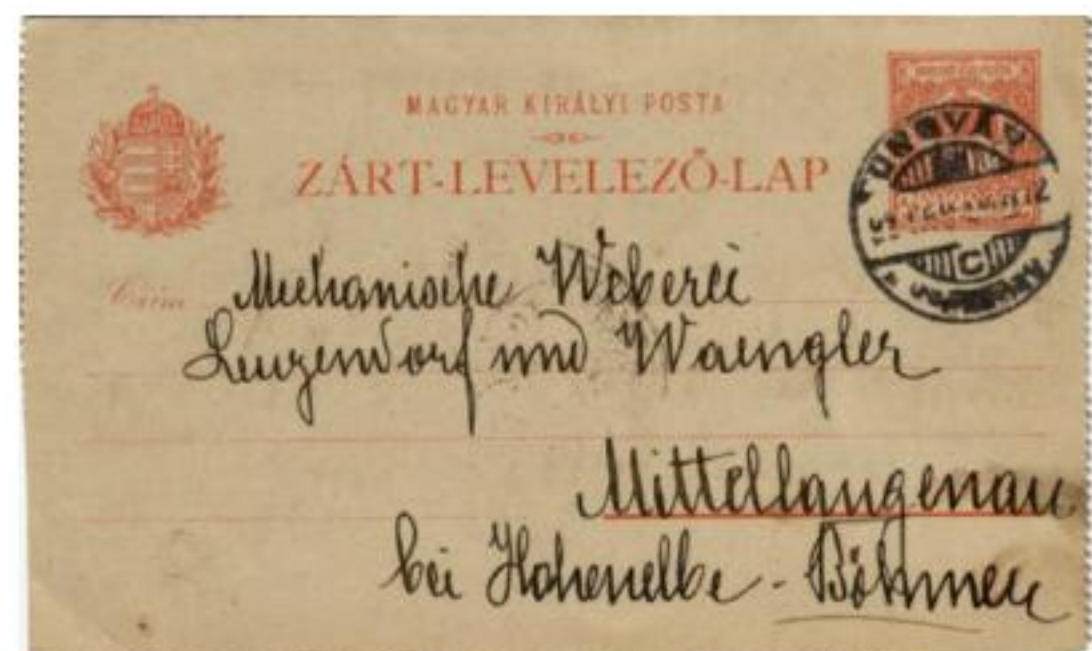 MAGYAR KIRÁLYI POSTA
ZÁRT-LEVELEZŐ-LAP
UNGVÁR
C
Czím
Mechanische Weberei
Lenzendorf und Waengler
Mittellangenau
bei Hohenelbe - Böhmen